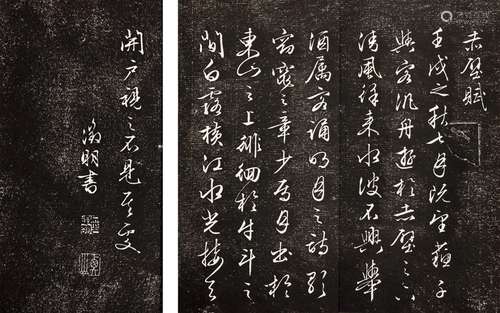 赤壁賦
壬戌之秋七月既望蘇子
與客汎舟遊於赤壁之下
清風徐來水波不興舉
酒屬客誦明月之詩歌
窈窕之章少焉月出於
東山之上徘徊於斗牛之
間白露橫江水光接天
開戶視之不見其處
徵明書